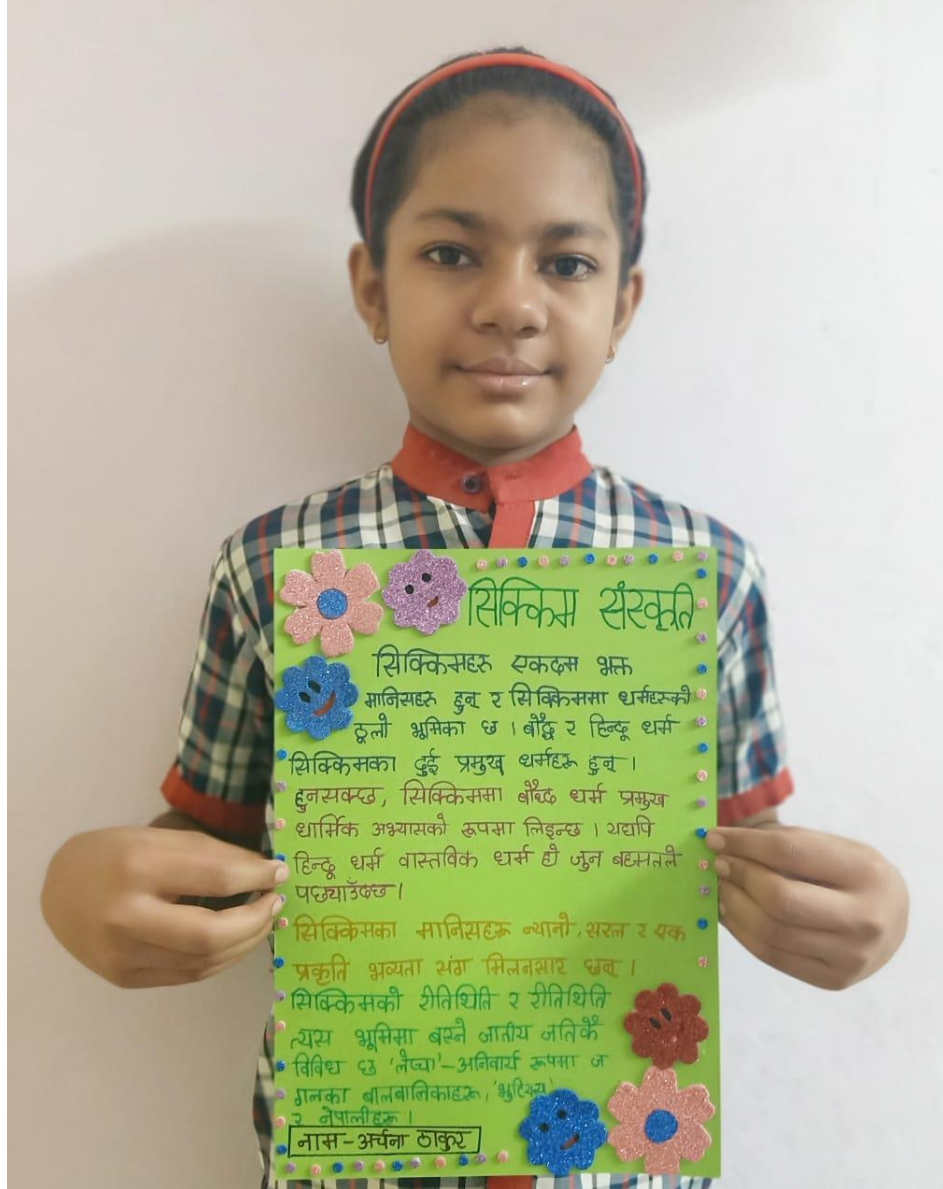 सिक्किम संस्कृति
सिक्किमहरू एकदम भक्त
मानिसहरू हुन् र सिक्किममा धर्महरूको
ठूलो भूमिका छ । बौद्ध र हिन्दू धर्म
सिक्किमका दुई प्रमुख धर्महरू हुन् ।
हुनसक्छ, सिक्किममा बौद्ध धर्म प्रमुख
धार्मिक अभ्यासको रूपमा लिइन्छ । यद्यपि
हिन्दू धर्म वास्तविक धर्म हो जुन बहमतले
पछ्याउँछ ।
सिक्किमका मानिसहरू न्यानो, सरल र एक
प्रकृति भव्यता संग मिलनसार छन् ।
सिक्किमको रीतिथिति र रीतिथिति
त्यस भूमिमा बस्ने जातीय जतिकै
विविध छ 'लेप्चा'-अनिवार्य रूपमा ज
गलका बालबालिकाहरू,
र नेपालीहरू ।
नाम-अर्चना ठाकुर